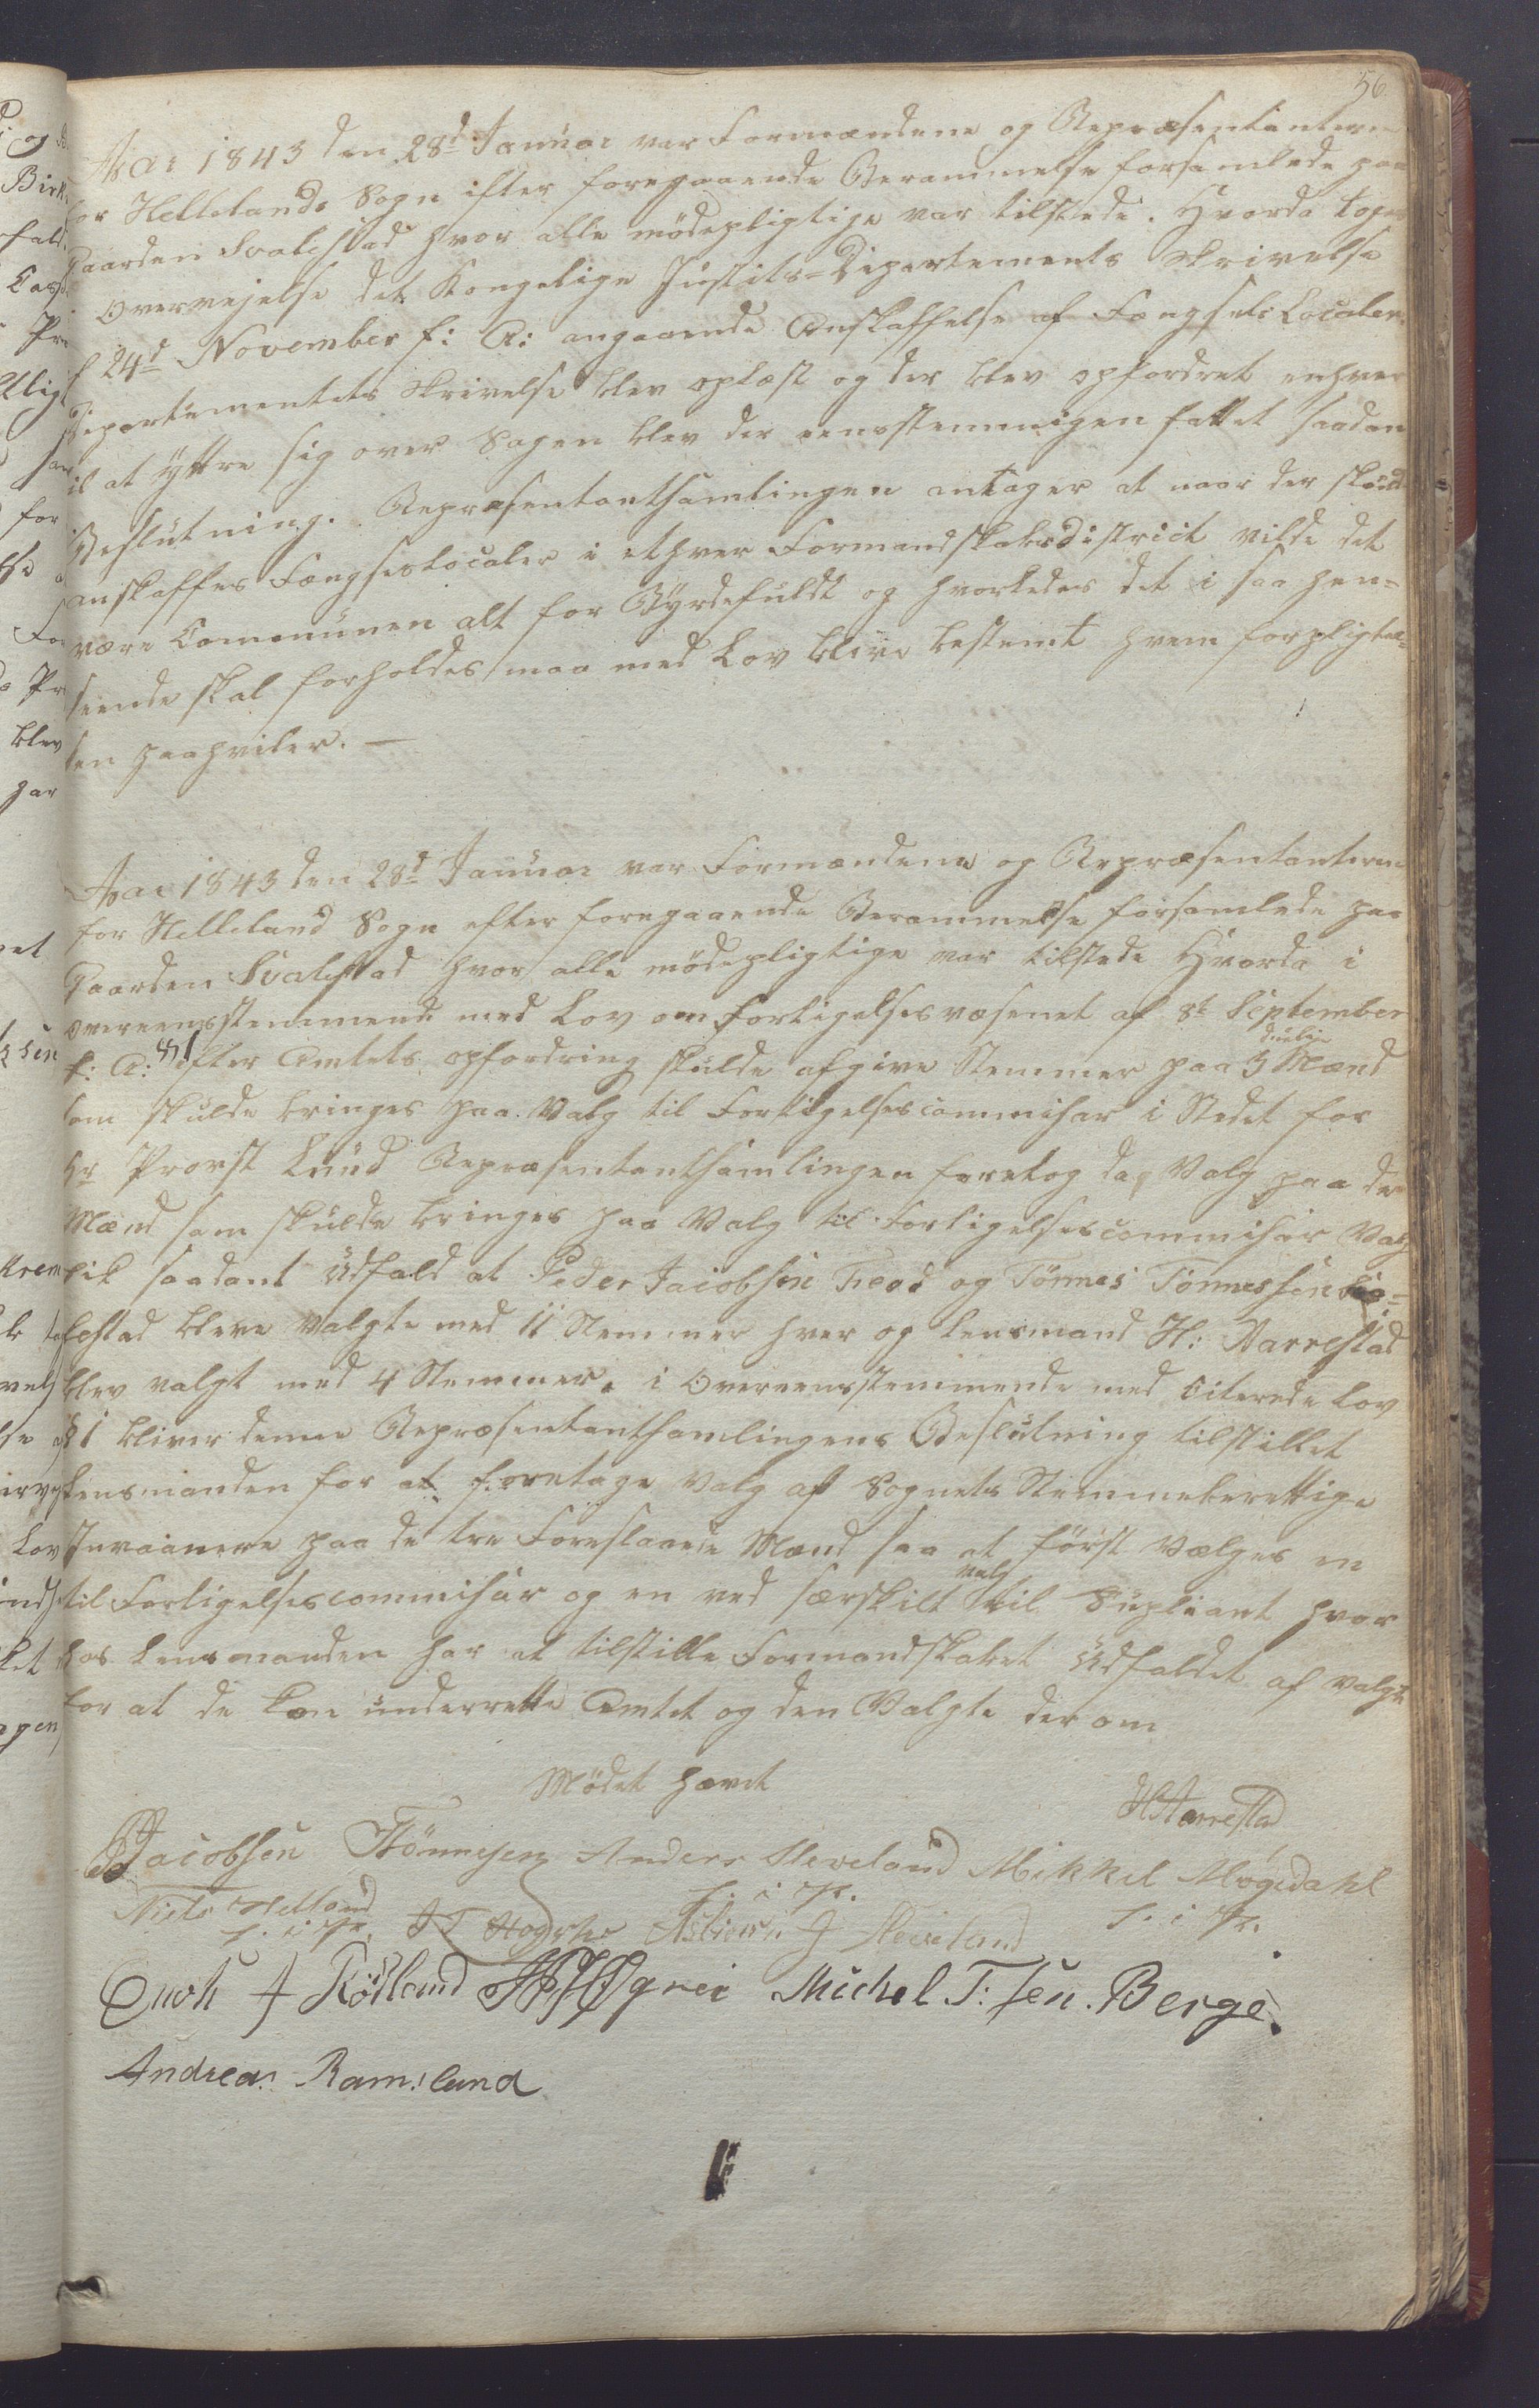 56
Aar 1843 den 28d Januar var Formændene og Repræsentanterne
for Hellelands Sogn efter foregaaende Berammelse forsamlede paa
Gaarden Svalestad hvor alle mødepligtige var tilstede. Hvorda toges
i Overvejelse det Kongelige Justits-Departements Skrivelse
af 24d November f: A: angaaende Anskaffelse af Fængsels Localer.
Departementets Skrivelse blev oplæst og der blev opfordret enhver
til at yttre sig over Sagen blev der eensstemmigen fattet saadan
Beslutning. Repræsentantsamlingen antager at naar der skulde
anskaffes Fængseslocaler i ethver Formandskabsdistrict vilde det
være Communen alt for Byrdefuldt og hvorledes det i saa hen-
seende skal forholdes maa med Lov blive bestemt hvem forpligtel-
sen paahviler. —
Aar 1843 den 28d Januar var Formændene og Repræsentanterne
for Helleland Sogn efter foregaaende Berammelse forsamlede paa
Gaarden Svalestad hvor alle mødepligtige var tilstede Hvorda i
overeensstemmende med Lov om Forligelsesvæsenet af 8t September
f: A: §1 efter Amtets opfordring skulde afgive Stemmer paa 3 duelige Mænd
som skulde bringes paa Valg til Forligelsescommisær i Stedet for
Hr Provst Lund Repræsentantsamlingen foretog da Valg paa de
Mænd som skulde bringes paa Valg til Forligelsescommisær Valg
fik saadant Udfald at Peder Jacobsen Treod og Tönnes Tönnessen Sva-
lestad bleve Valgte med 11 Stemmer hver og Lensmand H: Aarrestad
blev valgt med 4 Stemmer. i Overeensstemmende med Citerede Lov
§1 bliver denne Repræsentantsamlingens Beslutning tilstillet
Lensmanden for at foretage Valg af Sognets Stemmeberettige
Invaanere paa de tre Foreslaaede Mænd saa at først Vælges en
til Forligelsescommisær og en ved særskilt valg til Supleant hvor
hos Lensmanden har at tilstille Formandskabet Udfaldet af Valget
for at de kan underrette Amtet og den Valgte derom
Mödet hævet
HAarrestad
PJacobsen TTönnesen Anders Sleveland Mikkel Møgedahl
Niels Helland
f. i P.
f. i P.
f. i P.
J Sleveland
Enok J Rösland Øgrei Michel T: sen. Berge.
Andreas Ramsland